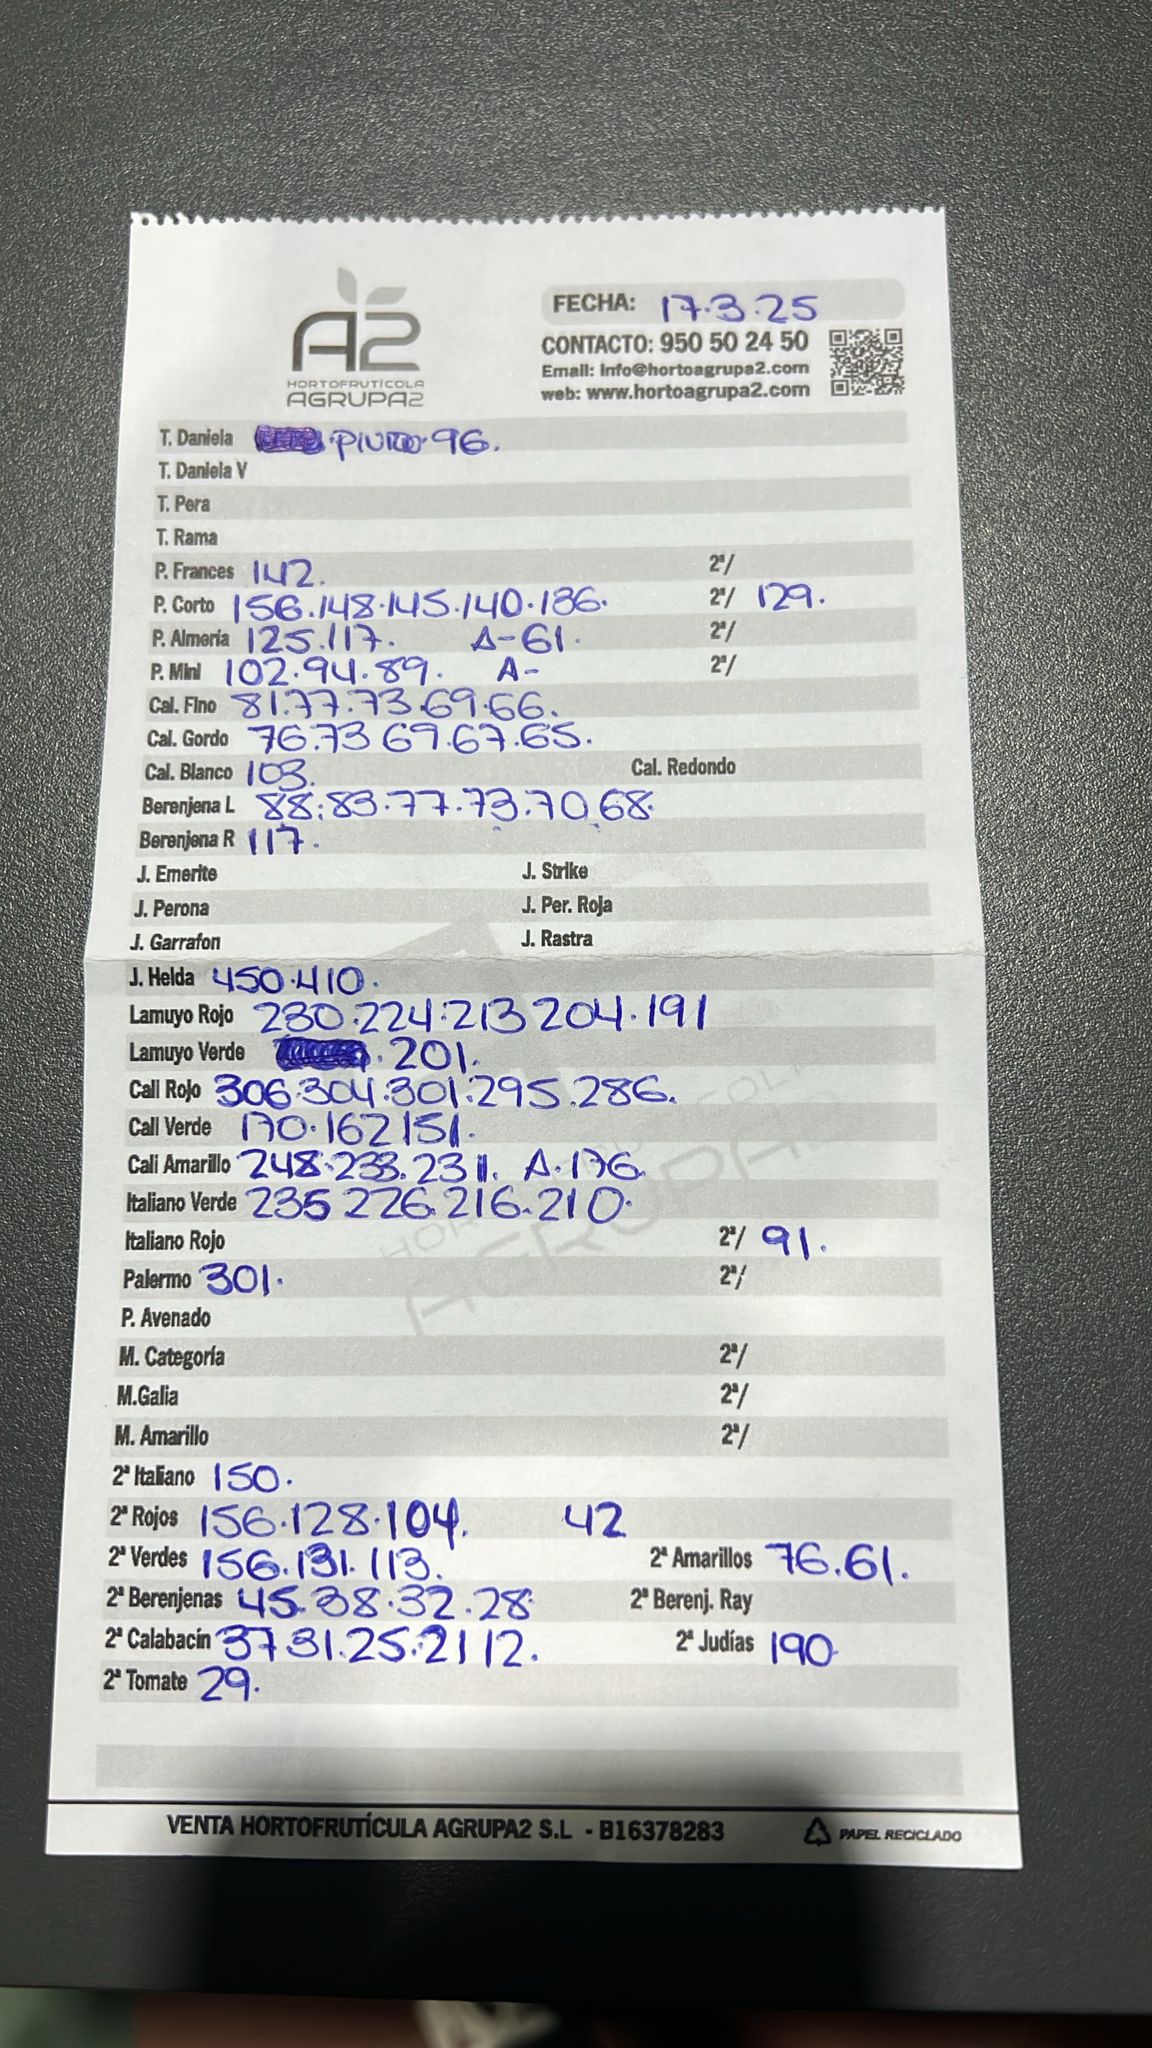 A2
HORTOFRUTÍCOLA
AGRUPA2
FECHA: 17.3.25
CONTACTO: 950 50 24 50
Email: info@hortoagrupa2.com
web: www.hortoagrupa2.com
T. Daniela . PINTO. 96.
T. Daniela V
T. Pera
T. Rama
P. Frances 142. 2ª/
P. Corto 156.148.145.140.136. 2ª/ 129.
P. Almería 125.117. A-61. 2ª/
P. Mini 102.94.89. A- 2ª/
Cal. Fino 81.77.73.69.66.
Cal. Gordo 76.73 69.67.65.
Cal. Blanco 103. Cal. Redondo
Berenjena L 88.83.77.73.70.68.
Berenjena R 117.
J. Emerite J. Strike
J. Perona J. Per. Roja
J. Garrafon J. Rastra
J. Helda 450.410.
Lamuyo Rojo 230.224.213 204.191
Lamuyo Verde . 201.
Cali Rojo 306.304.301.295.286.
Cali Verde 170.162 151.
Cali Amarillo 248.233.231. A.176.
Italiano Verde 235 226.216.210.
Italiano Rojo 2ª/ 91.
Palermo 301. 2ª/
P. Avenado
M. Categoría 2ª/
M.Galia 2ª/
M. Amarillo 2ª/
2ª Italiano 150.
2ª Rojos 156.128.104. 42
2ª Verdes 156.131.113. 2ª Amarillos 76.61.
2ª Berenjenas 45.38.32.28. 2ª Berenj. Ray
2ª Calabacín 37 31.25.21 12. 2ª Judías 190.
2ª Tomate 29.
VENTA HORTOFRUTÍCULA AGRUPA2 S.L - B16378283
PAPEL RECICLADO